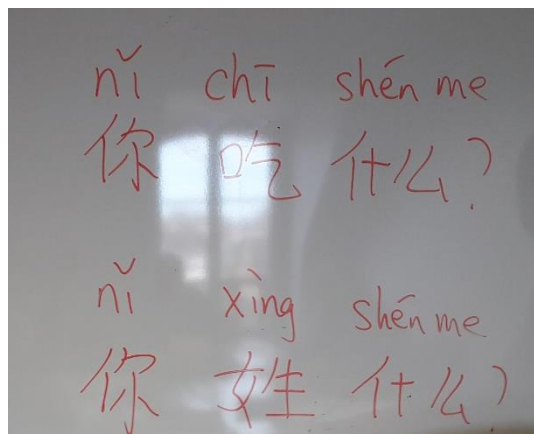 nǐ chī shén me
你 吃 什么?
nǐ xìng shén me
你 姓 什么?